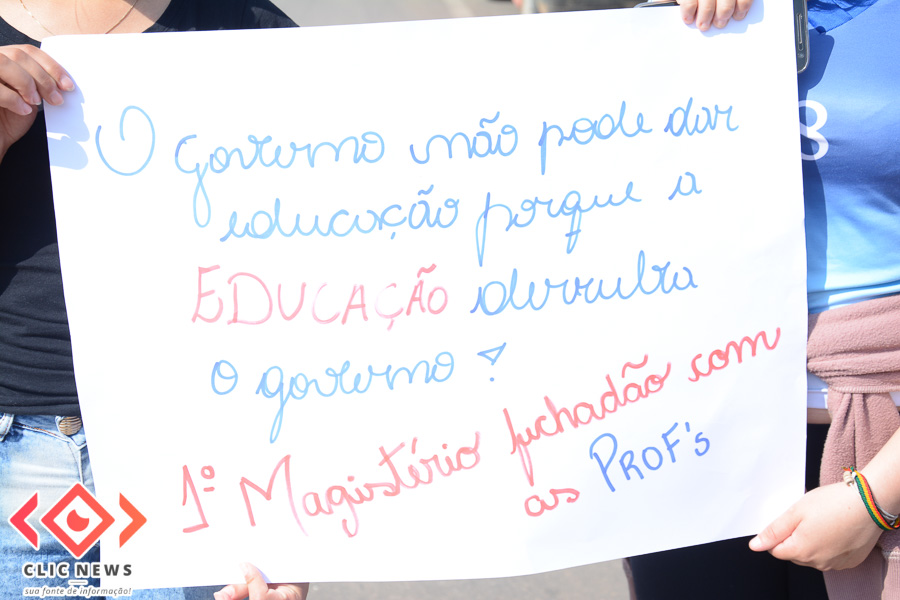 O governo não pode dar
educação porque a
EDUCAÇÃO derruba
o governo!
1º Magistério fuchadão com
as PROF's
8
CLIC NEWS
sua fonte de informação!